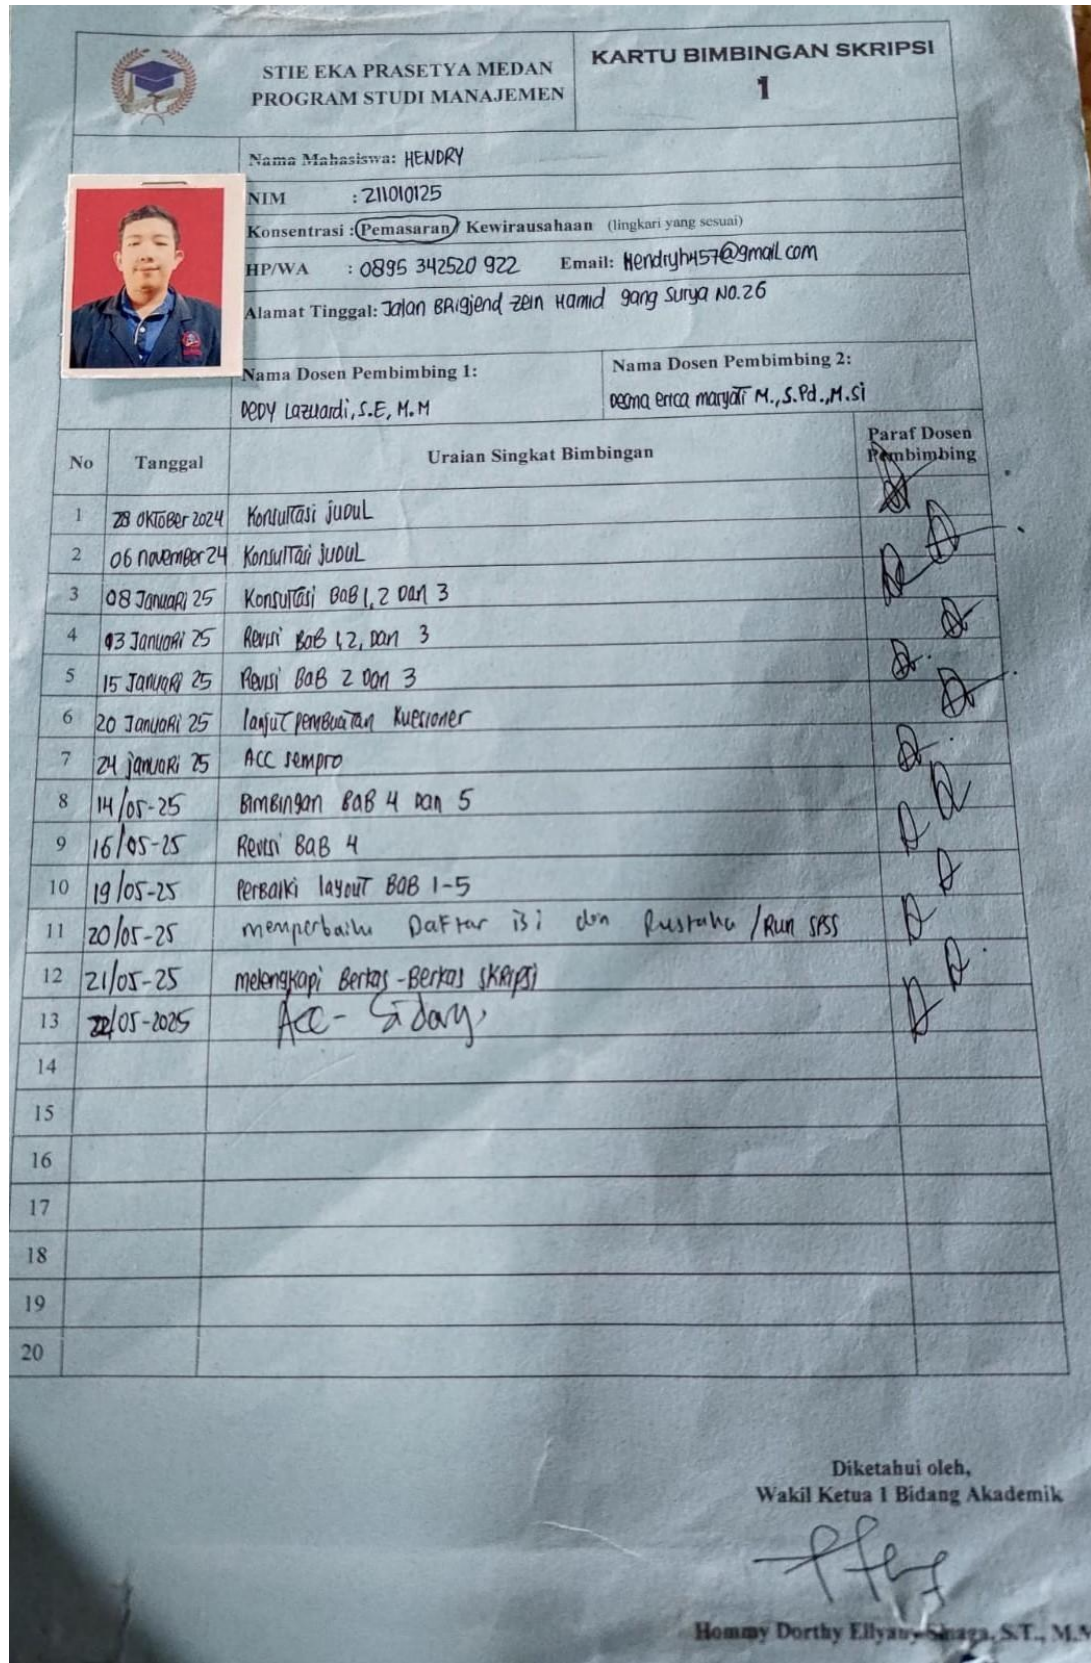 STIE EKA PRASETYA MEDAN
PROGRAM STUDI MANAJEMEN
KARTU BIMBINGAN SKRIPSI
1
Nama Mahasiswa: HENDRY
NIM : 211010125
Konsentrasi : Pemasaran / Kewirausahaan (lingkari yang sesuai)
HP/WA : 0895 342520 922 Email: Hendryh457@gmail.com
Alamat Tinggal: Jalan BRigjend zein Hamid gang Surya No.26
Nama Dosen Pembimbing 1:
DEDY Lazuardi, S.E, M.M
Nama Dosen Pembimbing 2:
Desma erica maryati M., S.Pd., M.Si
No Tanggal Uraian Singkat Bimbingan Paraf Dosen Pembimbing
1 28 OKTOBER 2024 Konsultasi JUDUL
2 06 november 24 Konsultasi JUDUL
3 08 Januari 25 Konsultasi BAB 1, 2 Dan 3
4 03 Januari 25 Revisi BAB 1, 2, Dan 3
5 15 Januari 25 Revisi BAB 2 Dan 3
6 20 Januari 25 lanjut pembuatan Kuesioner
7 24 januari 25 ACC sempro
8 14/05-25 BimBingan BAB 4 Dan 5
9 16/05-25 Revisi BAB 4
10 19/05-25 PerBaiki layout BAB 1-5
11 20/05-25 memperbaiki Daftar isi dan Pustaka / Run SPSS
12 21/05-25 melengkapi Berkas-Berkas SKRIPSI
13 22/05-2025 Acc - Sidang
14
15
16
17
18
19
20
Diketahui oleh,
Wakil Ketua 1 Bidang Akademik
Hommy Dorthy Ellyany Sinaga, S.T., M.M